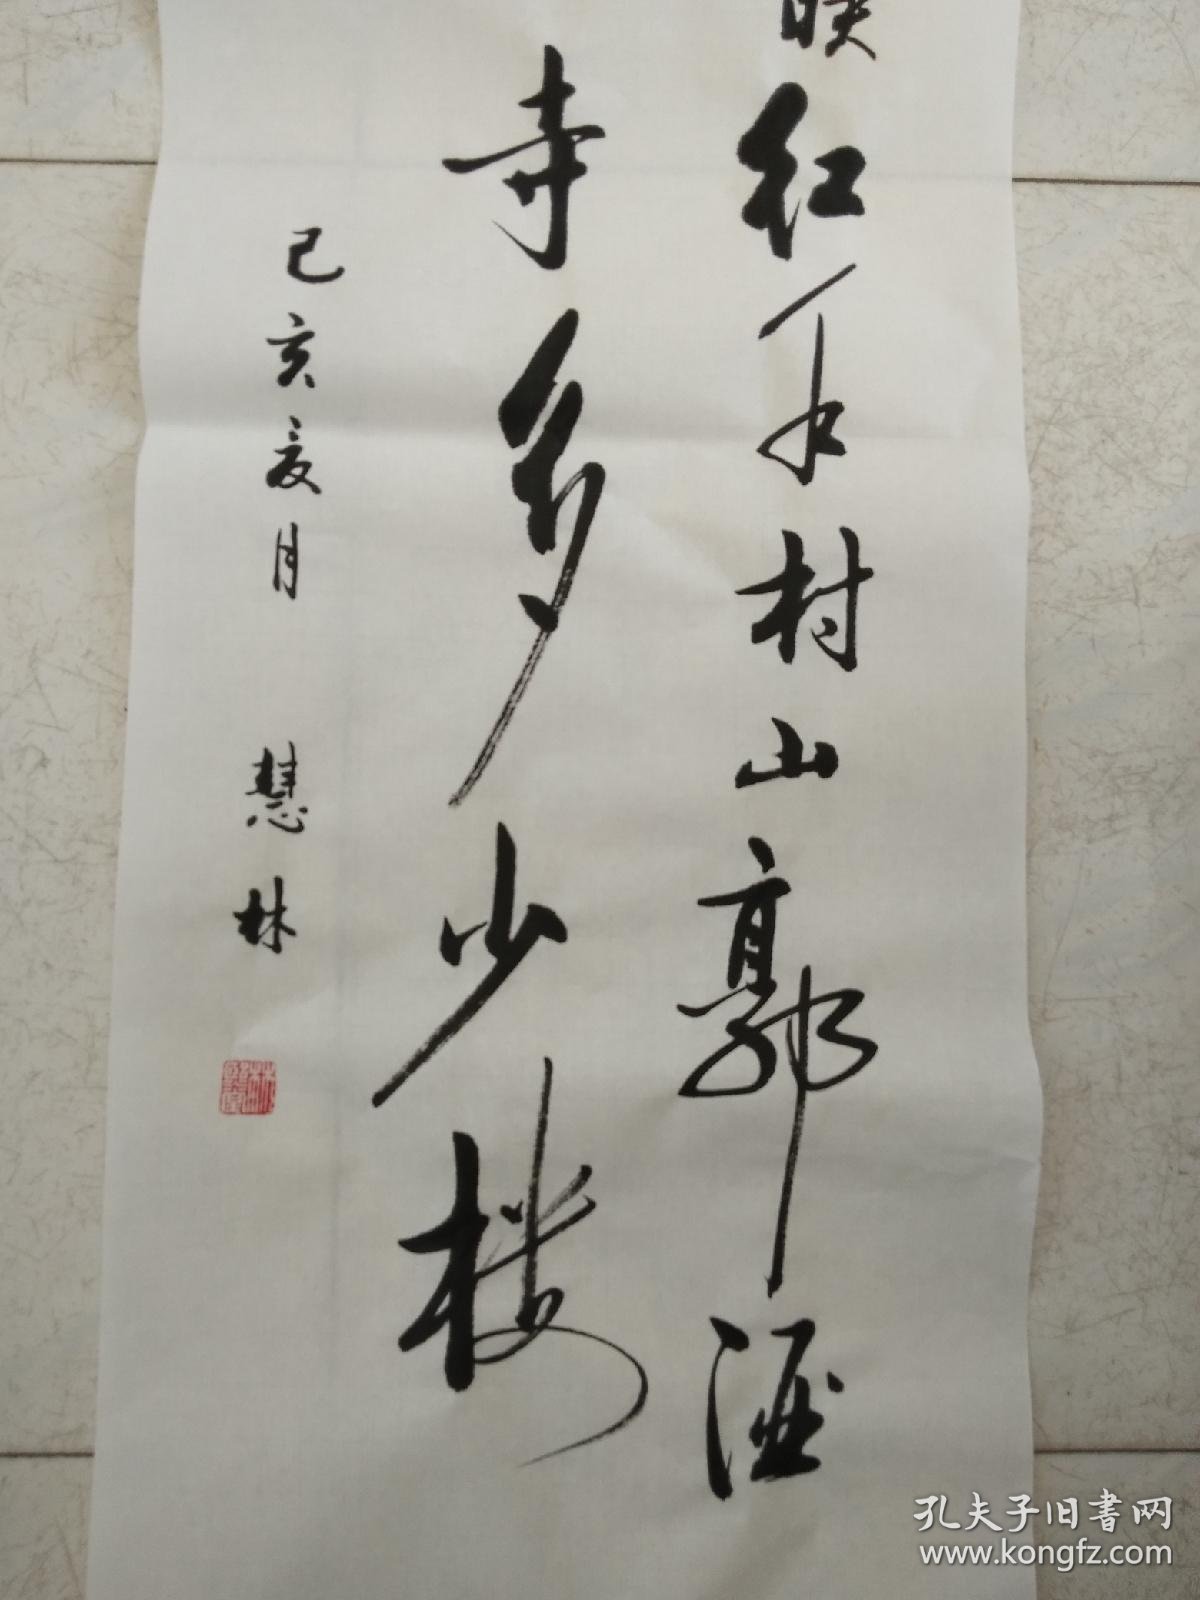 映红水村山郭酒
寺多少楼
己亥夏月 慧林
孔夫子旧书网
www.kongfz.com